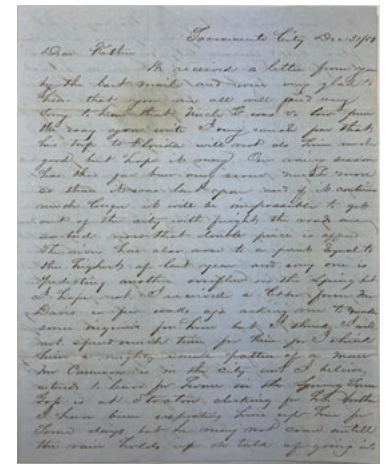 Sacramento City Dec 31/52
Dear Father
We received a letter from you
by the last mail and were very glad to
hear that you were all well and very
sorry to hear that Uncle was so low from
the way you write I very much fear that
his trip to Florida will not do him much
good but hope it may Our rainy season
has thus far been very severe much more
so than it was last year and if it continues
much longer it will be impossible to get
out of the city with freight the roads are
so bad now that double price is offered
The river has also rose to a point equal to
the highest of last year and every one is
another overflow in the Spring but
I hope not I received a letter from Mr
Davis a few weeks ago asking me to make
some inquiries for him but I think I will
not spend much time for him for I think
him a mighty small pattern of a man
Mr Cameron is in the city and I believe
intends to leave for home in the Spring
is at Stockton clerking for
I have been expecting him up here for
some days but he may not come untill
the rain holds up he talks of going